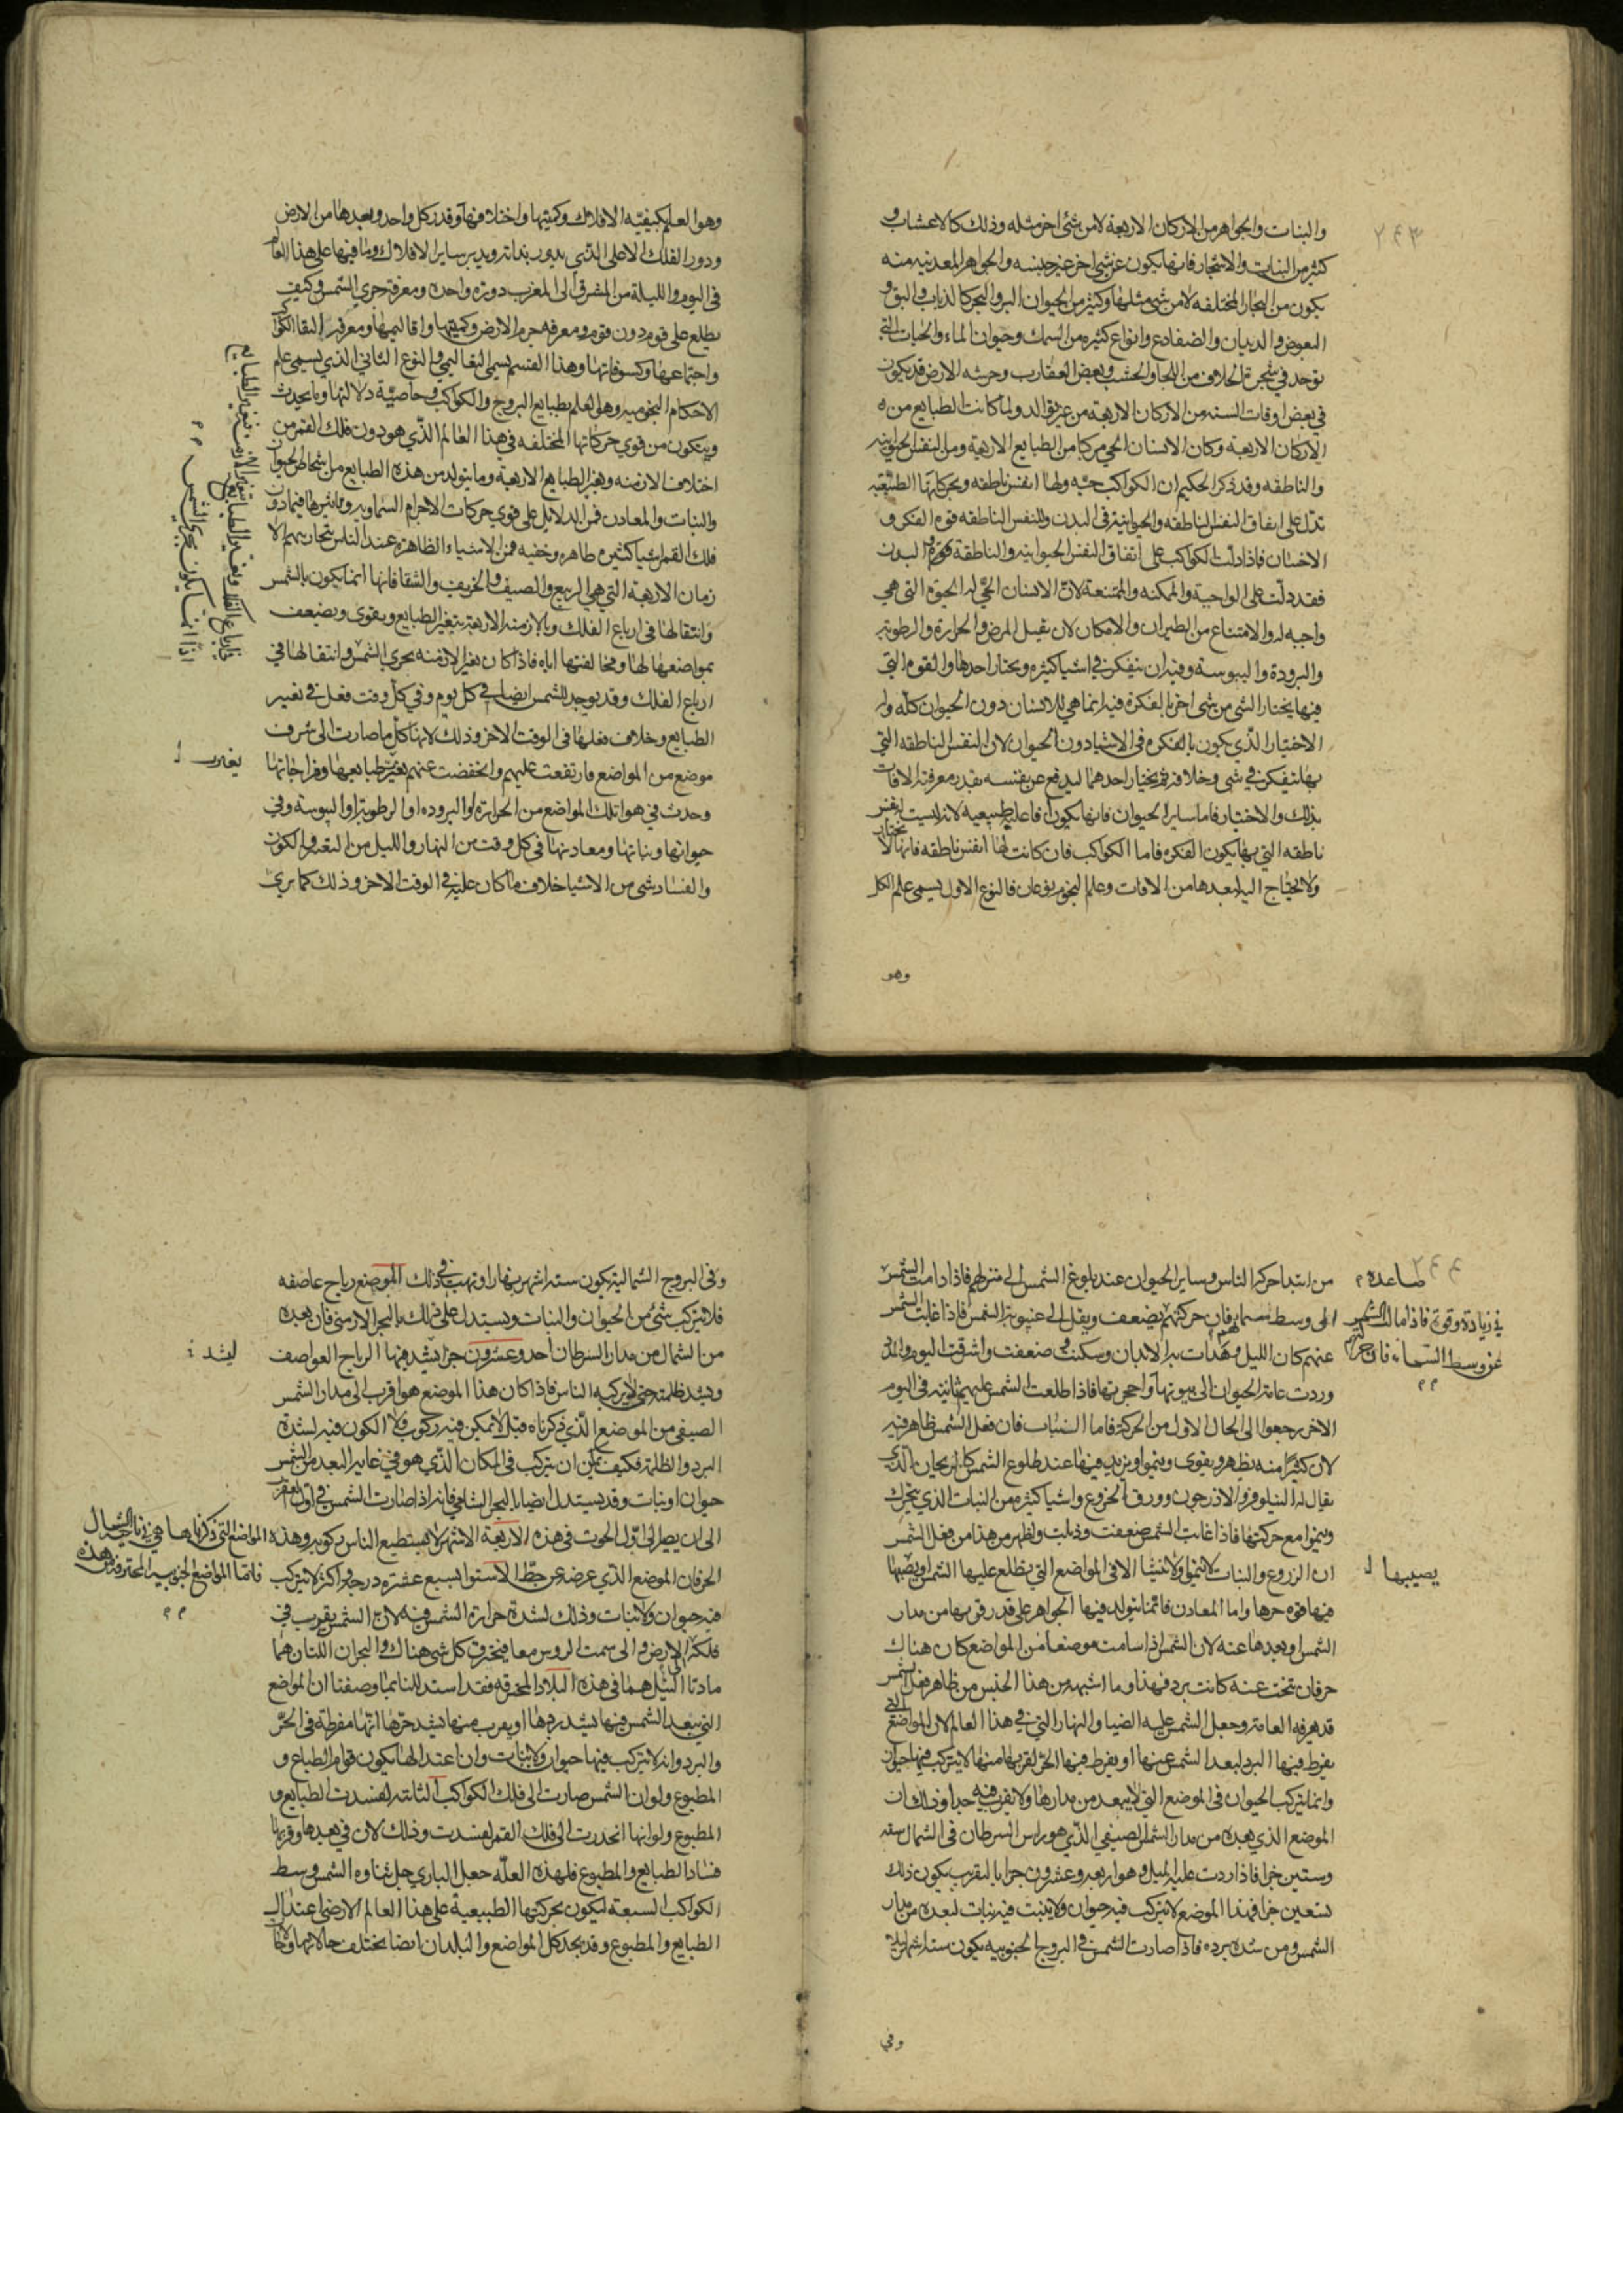 ٢٤٣
والنبات والجواهر من الاركان الاربعة لا من شئ اخر مثله وذلك كالاعشاب و
كثير من النبات والاشجار فانها يكون عن شئ اخر غير جنسه والجواهر المعدنيه منه
يكون من البخار المختلفه لا من شئ مثلها وكثير من الحيوان البر والبحر كالذباب والبق و
البعوض والديدان والضفادع وانواع كثيره من السمك وحيوان الماء والحيات التي
توجد في شجرة الخلاف من اللحا والخشب وبعض العقارب وحشه الارض قد يكون
في بعض اوقات السنه من الاركان الاربعة من غير توالد ولما كانت الطبايع من
الاركان الاربعه وكان الانسان الحي مركبا من الطبايع الاربعة ومن النفس الحيوانيه
والناطقه وقد ذكر الحكيم ان الكواكب حيه ولها انفس ناطقه وبحركاتها الطبيعيه
تدل على اتفاق النفس الناطقه والحيوانية في البدن وللنفس الناطقه قوه الفكر و
الاختيار فاذا دلت الكواكب على اتفاق النفس الحيوانيه والناطقة والبدن
فقد دلت على الواجبة والممكنه والممتنعة لان الانسان الحي له الحيوة التي هي
واجبه له والامتناع من الطيران والامكان لان يقبل المرض والحراره والرطوبه
والبرودة واليبوسة وفيه ان يتفكر في اشيا كثيره ويختار احدها والقوه التي
فيها يختار الشئ من شئ اخر بالفكرة فيه انما هي للانسان دون الحيوان كله و
الاختيار الذي يكون بالفكره في الاشيا دون الحيوان لان النفس الناطقه التي
بها يتفكر في شئ وخلافه ثم يختار احدهما ليدفع عن نفسه بقدر معرفته الافات
بذلك والاختيار فاما ساير الحيوان فانها يكون افاعيله طبيعيه لانه ليست له نفس
ناطقه التي بها يكون الفكره فاما الكواكب فان كانت لها انفس ناطقه فانها لا تختار
ولا يحتاج اليه لبعدها من الافات وعلم النجوم نوعان فالنوع الاول يسمى علم الكل
وهو
وهو العلم بكيفيه الافلاك وكميتها واختلافها وقدر كل واحد وبعدها من الارض
ودور الفلك الاعلى الذي يدور بذاته ويدير ساير الافلاك وما فيها على هذا العالم
في اليوم والليلة من المشرق الى المغرب دورة واحده ومعرفة جري الشمس وكيف
يطلع على قوم دون قوم ومعرفه جرم الارض وكميتها واقاليمها ومعرفة التقا الكواكب
واجتماعها وكسوفاتها وهذا القسم يسمى التعاليمي والنوع الثاني الذي يسمى علم
الاحكام النجوميه وهي العلم بطبايع البروج والكواكب وخاصية دلالتها وما يحدث
ويتكون من قوي حركاتها المختلفه في هذا العالم الذي هو دون فلك القمر من
اختلاف الازمنه وتغير الطبايع الاربعة وما يتولد من هذه الطبايع من اشخاص الحيوان
والنبات والمعادن فمن الدلايل على قوي حركات الاجرام السماويه وتاثيرها فيما دون
فلك القمر اشيا كثيره ظاهره وخفيه فمن الاشياء الظاهره عند الناس بتجاربهم الا
زمان الاربعة التي هي الربيع والصيف والخريف والشتا فانها انما يكون بالشمس
وانتقالها في ارباع الفلك وبالازمنه الاربعة يتغير الطبايع ويقوي ويضعف
بمواضعها لها ومخالفتها اياه فاذا كان تغير الازمنه بجري الشمس وانتقالها في
ارباع الفلك وقد يوجد للشمس ايضا في كل يوم وفي كل وقت فعل في تغيير
الطبايع وخلاف فعلها في الوقت الاخر وذلك لانها كل ما صارت الى شرف
موضع من المواضع فارتفعت عليهم وانخفضت عنهم بغير طبايعها ومزاجاتها
وحدث في هوا تلك المواضع من الحراره او البروده او الرطوبة او اليبوسة وفي
حيوانها ونباتها ومعادنها في كل وقت من النهار والليل من التغير والكون
والفساد شئ من الاشيا خلاف ما كان عليه في الوقت الاخر وذلك كما يري
يغير
٢٤٤
من ابتدا حركة الناس وساير الحيوان عند بلوغ الشمس الى منزلهم فاذا دامت الشمس
صاعده
في زيادة وقوة فاذا مالت الشمس
عن وسط السماء فان حركتهم
الى وسط سمايهم فان حركتهم يضعف ويقل الى غيبوبة الشمس فاذا غابت الشمس
عنهم كان الليل وهدات به الابدان وسكنت وضعفت
وردت عامة الحيوان الى بيوتها واحجرتها فاذا طلعت الشمس عليهم ثانية في اليوم
الاخر رجعوا الى الحال الاول من الحركة فاما النبات فان فعل الشمس ظاهر فيه
لان كثيرا منه يظهر ويقوي وينموا ويزيد فيها عند طلوع الشمس كالريحان الذي
يقال له النيلوفر والاذرجون وورق الخروع واشيا كثيره من النبات الذي يتحرك
وينموا مع حركتها فاذا غابت الشمس ضعفت وذبلت واظهر من هذا من فعل الشمس
ان الزروع والنبات لا تنموا ولا تنشا الا في المواضع التي تطلع عليها الشمس او يصيبها
يصيبها
فيها قوه حرها واما المعادن فانما يتولد فيها الجواهر على قدر قربها من مدار
الشمس او بعدها عنه لان الشمس اذا سامت موضعا من المواضع كان هناك
حر فان تنحت عنه كانت برد فهذا وما اشبهه من هذا الجنس من ظاهر فعل الشمس
قد يعرفه العامة وجعل الشمس عليه الضيا والنهار التي في هذا العالم لان المواضع التي
يفرط فيها البرد لبعد الشمس عنها او يفرط فيها الحر لقربها منها لا يتركب فيها حيوان
وانما يتركب الحيوان في الموضع التي لا يبعد من مدارها ولا تقرب فيه جدا وذلك ان
الموضع الذي بعده من مدار الشمس الصيفي الذي هو راس السرطان في الشمال سته
وستين جزا فاذا زدت عليه الميل وهو اربعه وعشرون جزا بالتقريب يكون ذلك
تسعين جزا فهذا الموضع لا يتركب فيه حيوان ولا ينبت فيه نبات لبعده من مدار
الشمس ومن شده برده فاذا صارت الشمس في البروج الجنوبيه يكون سته اشهر ليلا
وفي
وفي البروج الشماليه يكون سته اشهر نهارا وتهب في ذلك الموضع رياح عاصفه
فلا يتركب شئ من الحيوان والنبات ويستدل على ذلك بالبحر الارمني فان بعده
من الشمال من مدار السرطان احد وعشرون جزا يشتد فيها الرياح العواصف
ليشتد
ويشتد ظلمته حتى لا يركبه الناس فاذا كان هذا الموضع هو اقرب الى مدار الشمس
الصيفي من الموضع الذي ذكرناه قبل لا يمكن فيه ركوب ولا الكون فيه لشدة
البرد والظلمة فكيف يمكن ان يتركب في المكان الذي هو في غاية البعد من الشمس
حيوان او نبات وقد يستدل ايضا بالبحر الشامي فانه اذا صارت الشمس في اول العقرب
الى ان يصير الى اول الحوت في هذه الاربعة الاشهر لا يستطيع الناس ركوبه وهذه المواضع التي ذكرناها هي في ناحية الشمال
فاما المواضع الجنوبيه المحترقه من هذه
الحر فان الموضع الذي عرضه عن خط الاستوا تسع عشره درجة او اكثر لا يتركب
فيه حيوان ولا نبات وذلك لشدة حرارة الشمس فيه لان الشمس يقرب في
فلكها الى الارض والى سمت الروس معا فيحترق كل شئ هناك والبحران اللتان هما
مادتا النيل هما في هذه البلاد المحترقه فقد استدللنا بما وصفنا ان المواضع
التي تبعد الشمس فيها يشتد بردها او يقرب منها يشتد حرها انها مفرطة في الحر
والبرد وانه لا يتركب فيها حيوان ولا نبات وان اعتدالها يكون قوام الطبايع و
المطبوع ولو ان الشمس صارت الى فلك الكواكب الثابته لفسدت الطبايع و
المطبوع ولو انها انحدرت الى فلك القمر لفسدت وذلك لان في بعدها وقربها
فساد الطبايع والمطبوع فلهذه العله جعل الباري جل ثناوه الشمس وسط
الكواكب السبعة ليكون بحركتها الطبيعية على هذا العالم الارضي اعتدال
الطبايع والمطبوع وقد يجد كل المواضع والبلدان ايضا يختلف حالاتها